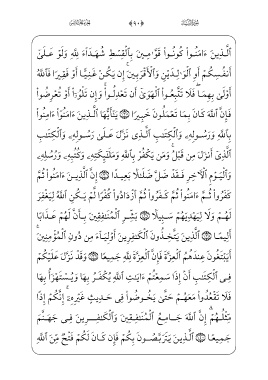 ﴿٩٠﴾
ٱلَّذِينَ ءَامَنُوا۟ كُونُوا۟ قَوَّٰمِينَ بِٱلْقِسْطِ شُهَدَآءَ لِلَّهِ وَلَوْ عَلَىٰٓ
أَنفُسِكُمْ أَوِ ٱلْوَٰلِدَيْنِ وَٱلْأَقْرَبِينَ إِن يَكُنْ غَنِيًّا أَوْ فَقِيرًا فَٱللَّهُ
أَوْلَىٰ بِهِمَا فَلَا تَتَّبِعُوا۟ ٱلْهَوَىٰٓ أَن تَعْدِلُوا۟ وَإِن تَلْوُۥٓا۟ أَوْ تُعْرِضُوا۟
فَإِنَّ ٱللَّهَ كَانَ بِمَا تَعْمَلُونَ خَبِيرًا يَٰٓأَيُّهَا ٱلَّذِينَ ءَامَنُوٓا۟ ءَامِنُوا۟
بِٱللَّهِ وَرَسُولِهِۦ وَٱلْكِتَٰبِ ٱلَّذِى نَزَّلَ عَلَىٰ رَسُولِهِۦ وَٱلْكِتَٰبِ
ٱلَّذِىٓ أَنزَلَ مِن قَبْلُ وَمَن يَكْفُرْ بِٱللَّهِ وَمَلَٰٓئِكَتِهِۦ وَكُتُبِهِۦ وَرُسُلِهِۦ
وَٱلْيَوْمِ ٱلْءَاخِرِ فَقَدْ ضَلَّ ضَلَٰلًۢا بَعِيدًا إِنَّ ٱلَّذِينَ ءَامَنُوا۟ ثُمَّ
كَفَرُوا۟ ثُمَّ ءَامَنُوا۟ ثُمَّ كَفَرُوا۟ ثُمَّ ٱزْدَادُوا۟ كُفْرًا لَّمْ يَكُنِ ٱللَّهُ لِيَغْفِرَ
لَهُمْ وَلَا لِيَهْدِيَهُمْ سَبِيلًۢا بَشِّرِ ٱلْمُنَٰفِقِينَ بِأَنَّ لَهُمْ عَذَابًا
أَلِيمًا ٱلَّذِينَ يَتَّخِذُونَ ٱلْكَٰفِرِينَ أَوْلِيَآءَ مِن دُونِ ٱلْمُؤْمِنِينَ
أَيَبْتَغُونَ عِندَهُمُ ٱلْعِزَّةَ فَإِنَّ ٱلْعِزَّةَ لِلَّهِ جَمِيعًا وَقَدْ نَزَّلَ عَلَيْكُمْ
فِى ٱلْكِتَٰبِ أَنْ إِذَا سَمِعْتُمْ ءَايَٰتِ ٱللَّهِ يُكْفَرُ بِهَا وَيُسْتَهْزَأُ بِهَا
فَلَا تَقْعُدُوا۟ مَعَهُمْ حَتَّىٰ يَخُوضُوا۟ فِى حَدِيثٍ غَيْرِهِۦٓ إِنَّكُمْ إِذًا
مِّثْلُهُمْ إِنَّ ٱللَّهَ جَامِعُ ٱلْمُنَٰفِقِينَ وَٱلْكَٰفِرِينَ فِى جَهَنَّمَ
جَمِيعًا ٱلَّذِينَ يَتَرَبَّصُونَ بِكُمْ فَإِن كَانَ لَكُمْ فَتْحٌ مِّنَ ٱللَّهِ